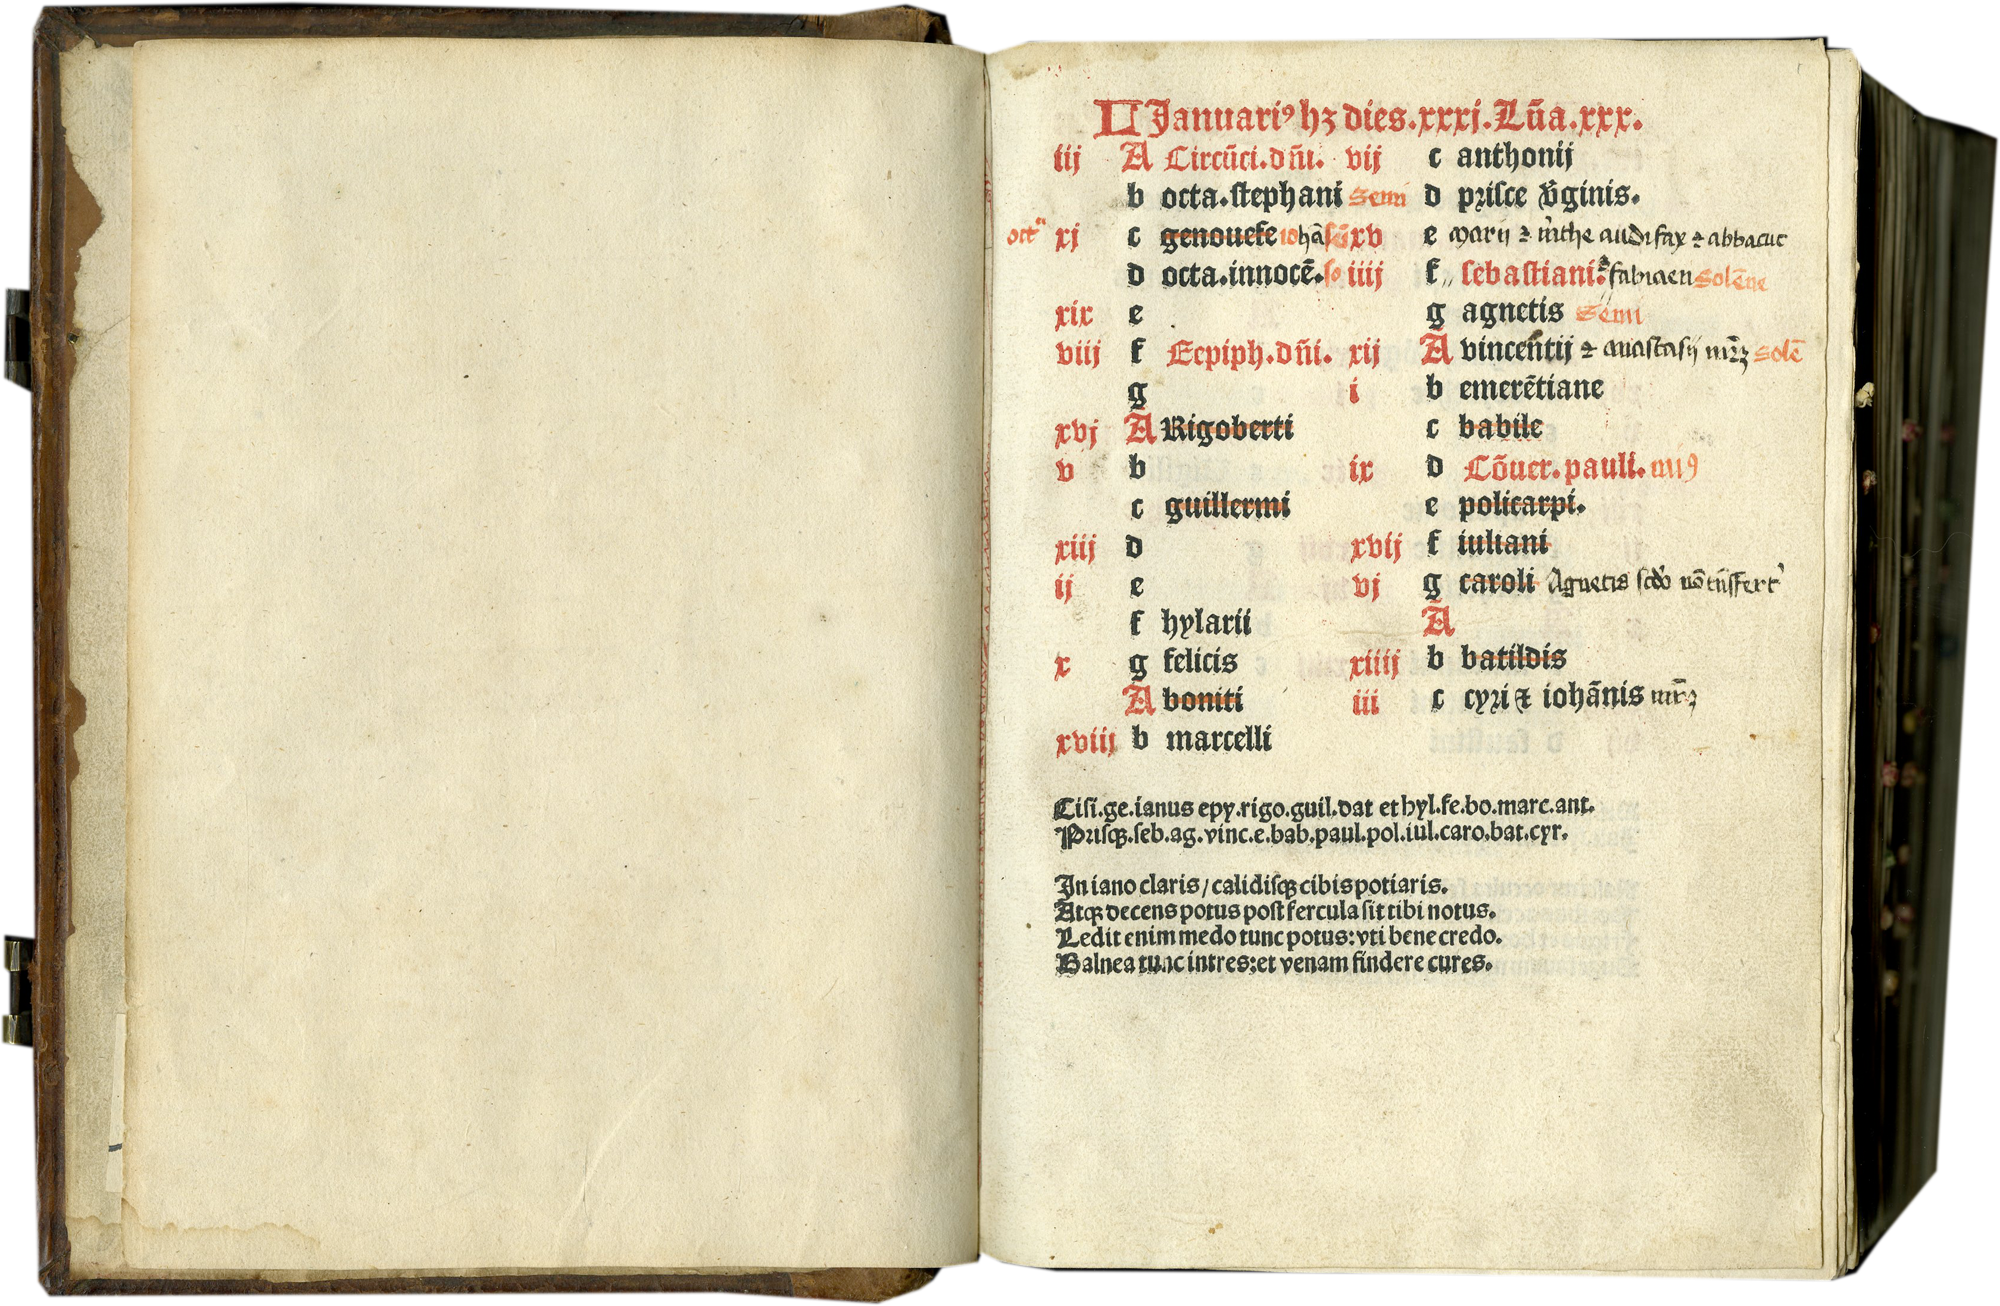 KL Januariꝰ hꝫ dies.xxxj.Lūa.xxx.
iij A Circūci.dñi.
b octa.stephani Semi
octᵃ xj c genouefe iohā
d octa.innocē. so
xix e
viij f Ecpiph.dñi.
g
xvj A Rigoberti
v b
c guillermi
xiij d
ij e
f hylarii
x g felicis
A boniti
xviij b marcelli
vij c anthonij
d prisce v̄ginis.
xv e marij ⁊ mͬthe audifax ⁊ abbacuc
iiij f sebastiani. ⁊ fabiaen Solēne
g agnetis Semi
xij A vincentij ⁊ anastasij mr̄ꝫ Solē
i b emerētiane
c babile
ix d Cōuer.pauli. miꝰ
e policarpi.
xvij f iuliani
vj g caroli Agnetis scd̓o
A
xiiij b batildis
iii c cyri ⁊ iohānis mr̄ꝫ
Cisi.ge.ianus epy.rigo.guil.dat et hyl.fe.bo.marc.ant.
Prisqꝫ.seb.ag.vinc.e.bab.paul.pol.iul.caro.bat.cyr.
In iano claris/calidisqꝫ cibis potiaris.
Atqꝫ decens potus post fercula sit tibi notus.
Ledit enim medo tunc potus:vti bene credo.
Balnea tunc intres:et venam findere cures.